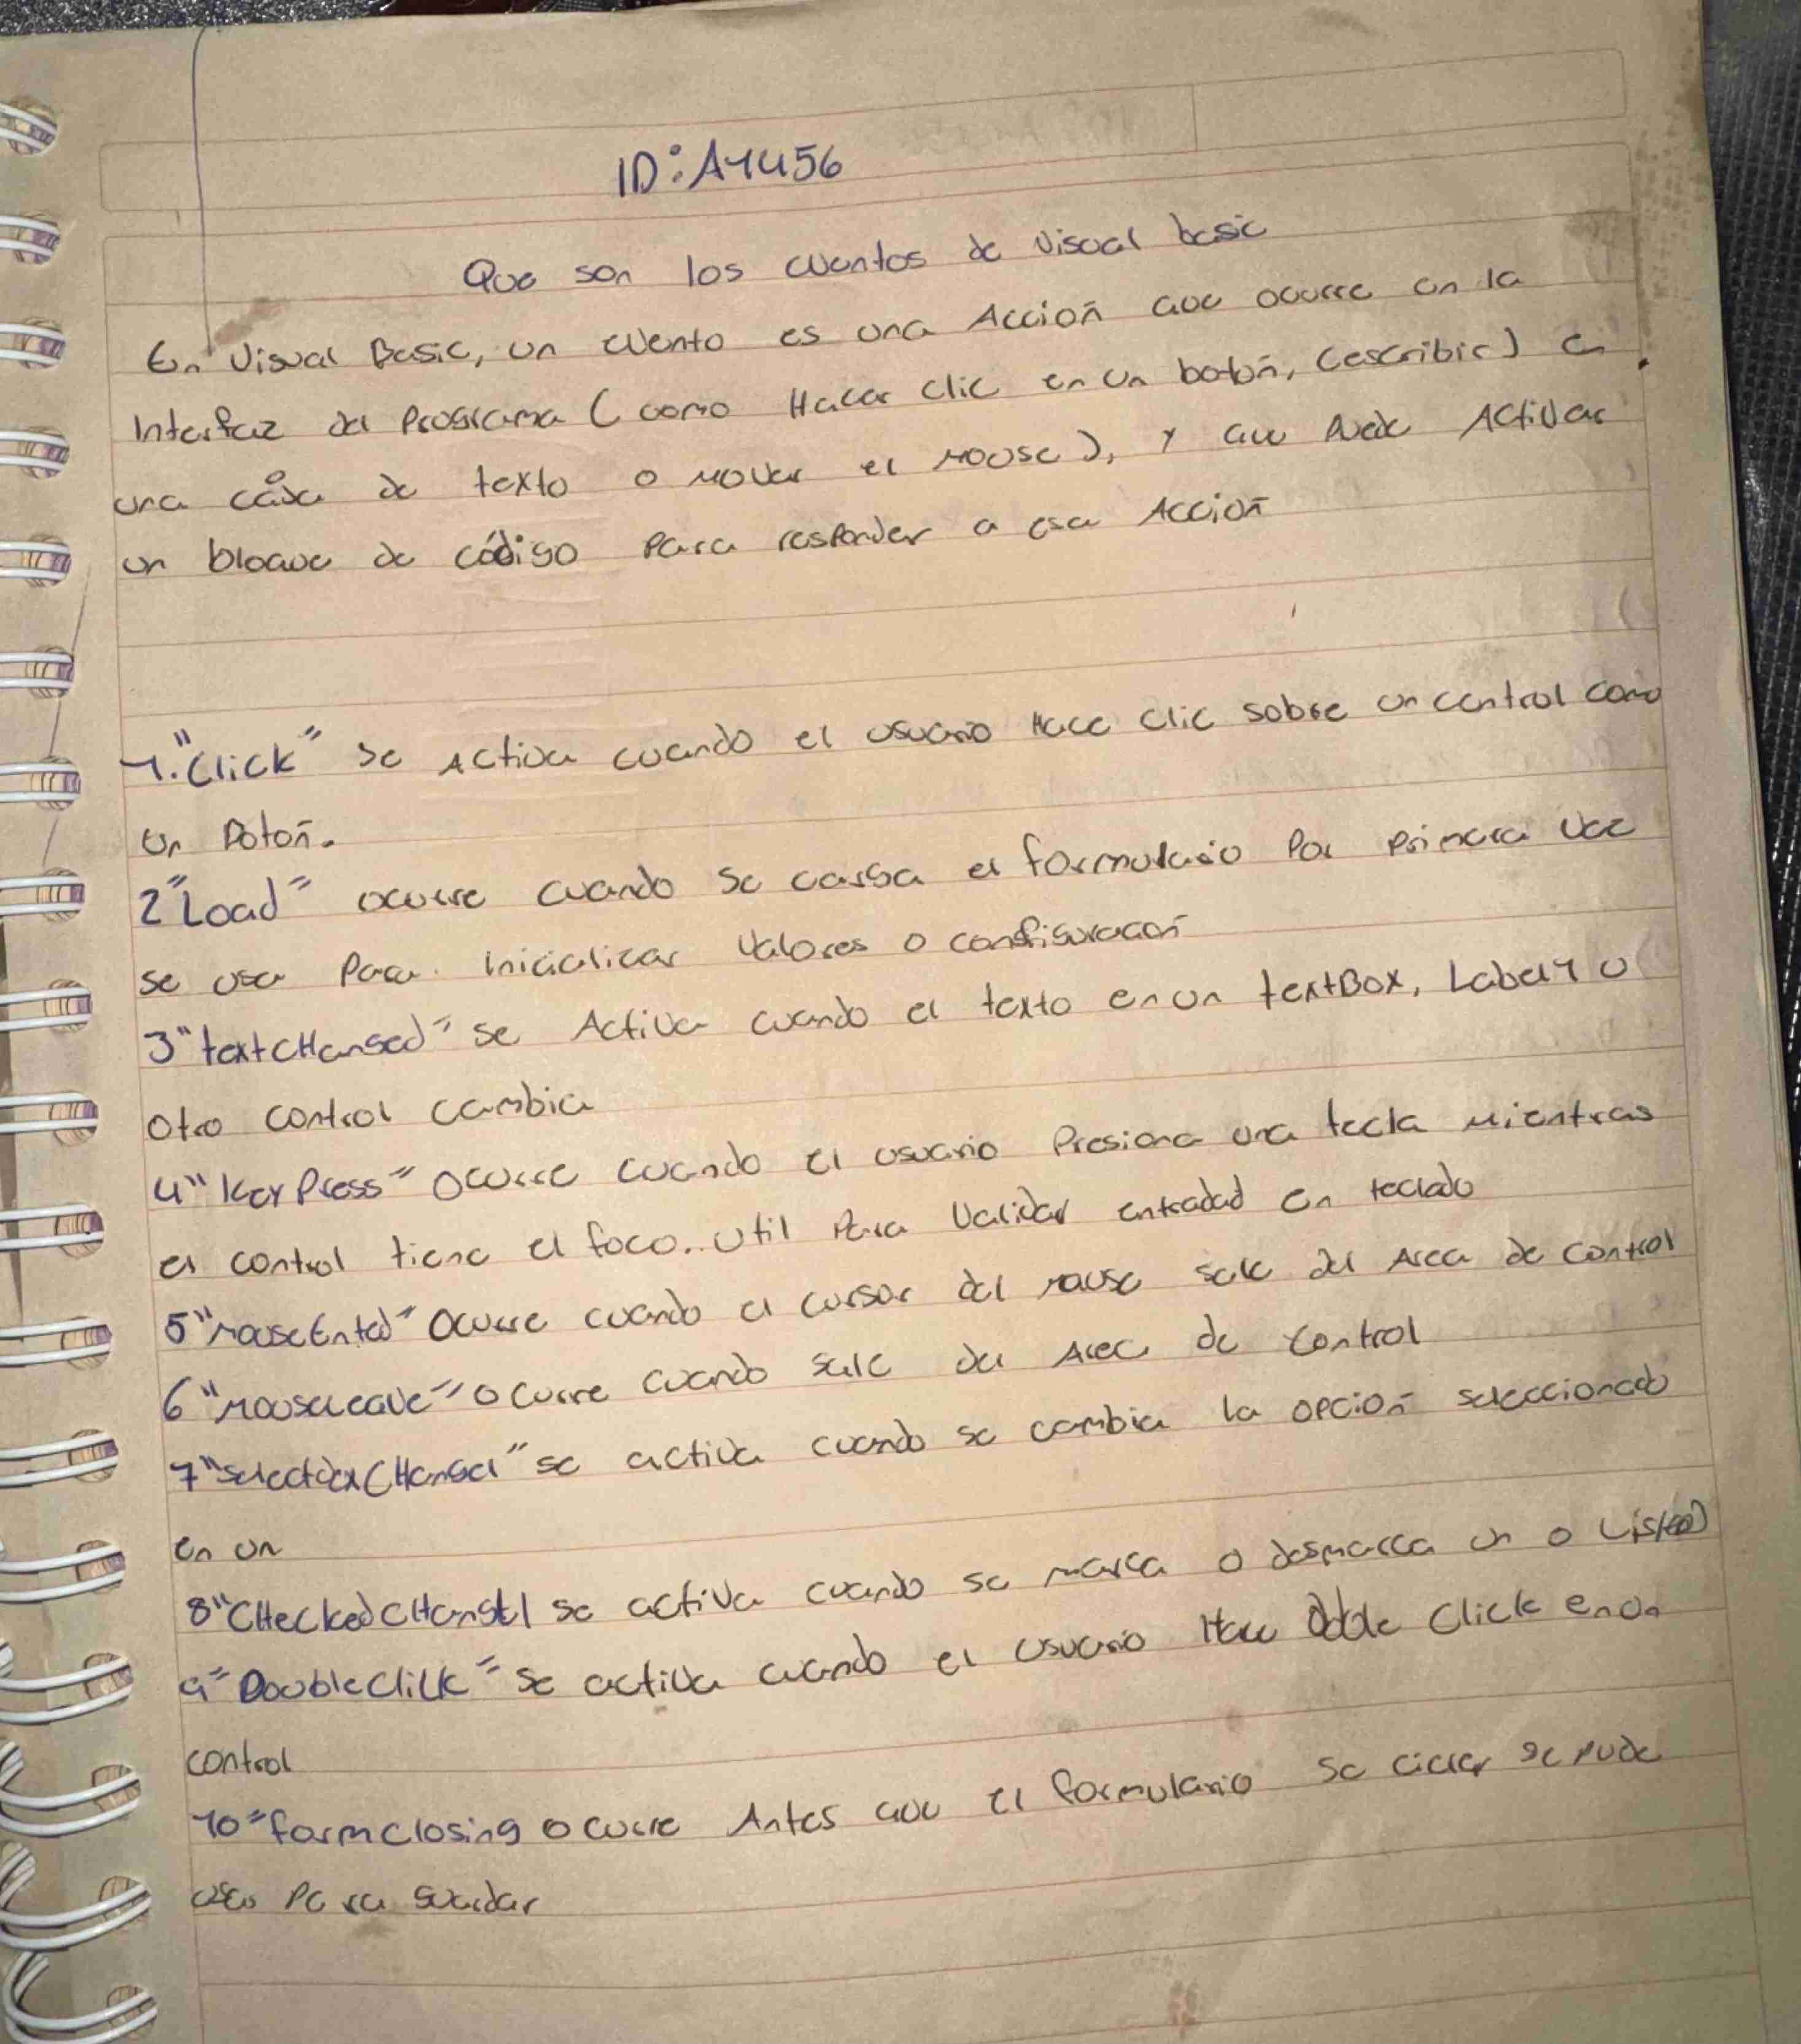 ID: A1456
Que son los eventos de Visual basic
En Visual Basic, un evento es una Acción que ocurre en la
Interfaz del Programa (como Hacer clic en un botón, (escribir) en
una caja de texto o mover el mouse), y que Puede Activar
un bloque de código Para responder a esa Acción
1. "Click" se Activa cuando el usuario Hace clic sobre un control como
un Botón.
2 "Load" ocurre cuando se carga el formulario Por Primera vez
se usa Para Inicializar Valores o configuración
3 "textCHanged" se Activa cuando el texto en un textBox, Label1 u
Otro control cambia
4 "KeyPress" Ocurre cuando el usuario Presiona una tecla mientras
el control tiene el foco. Util Para Validar entradad en teclado
5 "MouseEnted" Ocurre cuando el cursor del mause sale del Area de control
6 "MouseLeave" ocurre cuando sale del Area de control
7 se activa cuando se cambia la opción seleccionado
en un
8 "CHecked se activa cuando se marca o desmarca un o
9 "DoubleClilk" se activa cuando el usuario Hace doble Click en un
control
10 "formclosing ocurre Antes que el formulario se se pude
Para